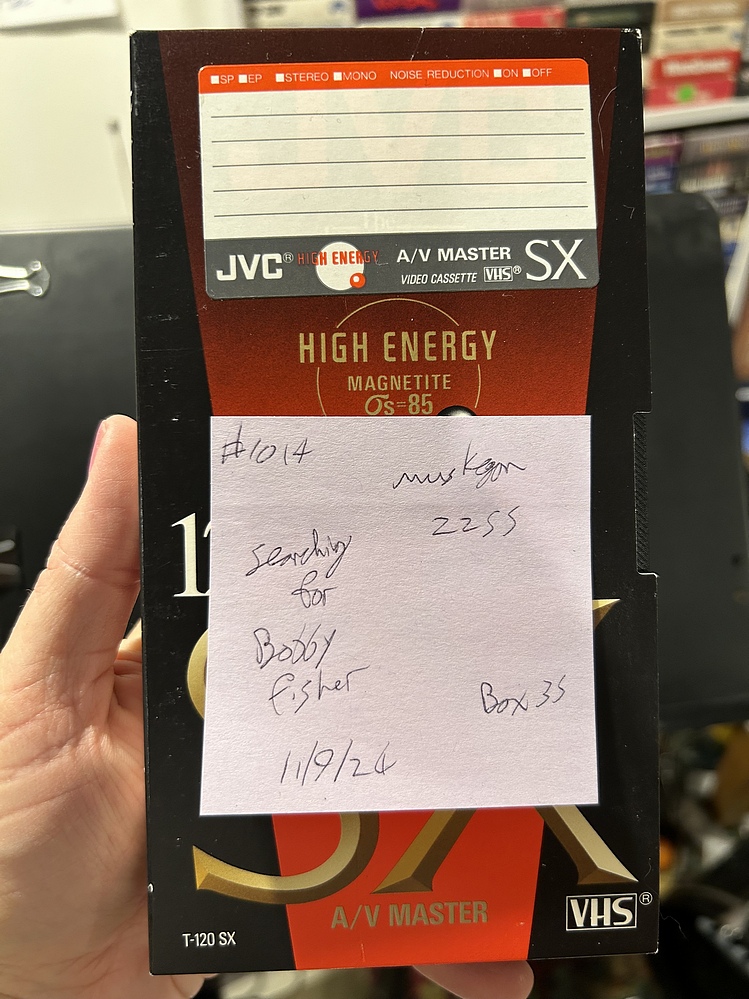 SP EP STEREO MONO NOISE REDUCTION ON OFF
JVC® HIGH ENERGY A/V MASTER SX
VIDEO CASSETTE VHS®
HIGH ENERGY
MAGNETITE
σs=85
#1014
muskegon
2255
Searching
for
Bobby
fisher
Box 35
11/9/24
A/V MASTER
T-120 SX
VHS®